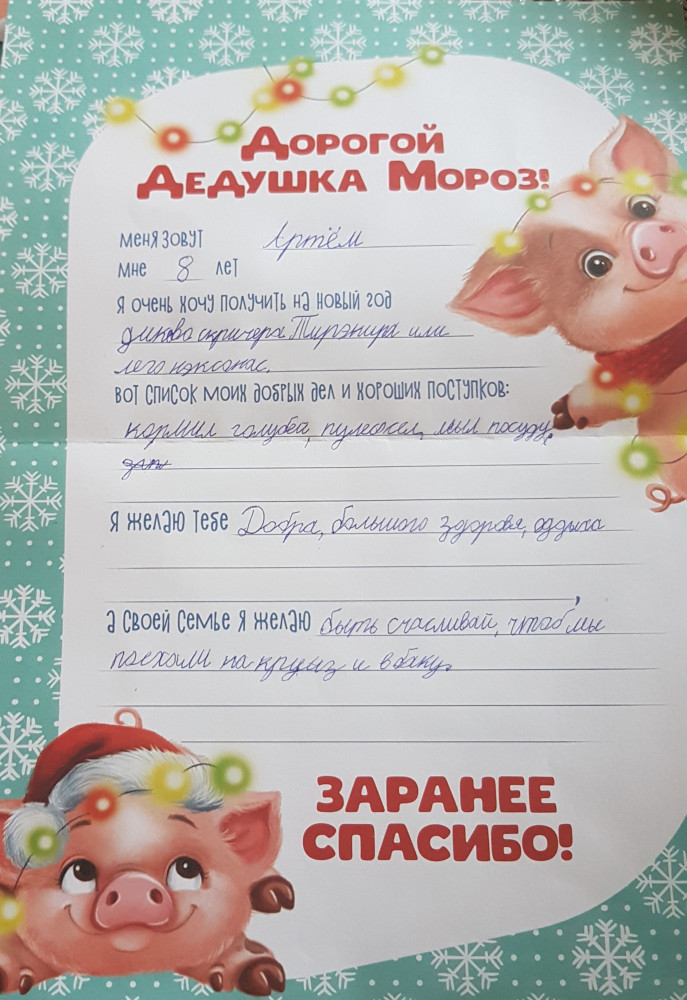 Дорогой
Дедушка Мороз!
меня зовут Артём
мне 8 лет
я очень хочу получить на новый год
дикова скричера Тирэнира или
лего нэксонас.
вот список моих добрых дел и хороших поступков:
кормил голубей, мыл посуду.
я желаю тебе Добра, большого здоровя, оддыха
,
а своей семье я желаю быть счасливай, чтоб мы
поехали на круыз и в баку.
ЗАРАНЕЕ
СПАСИБО!